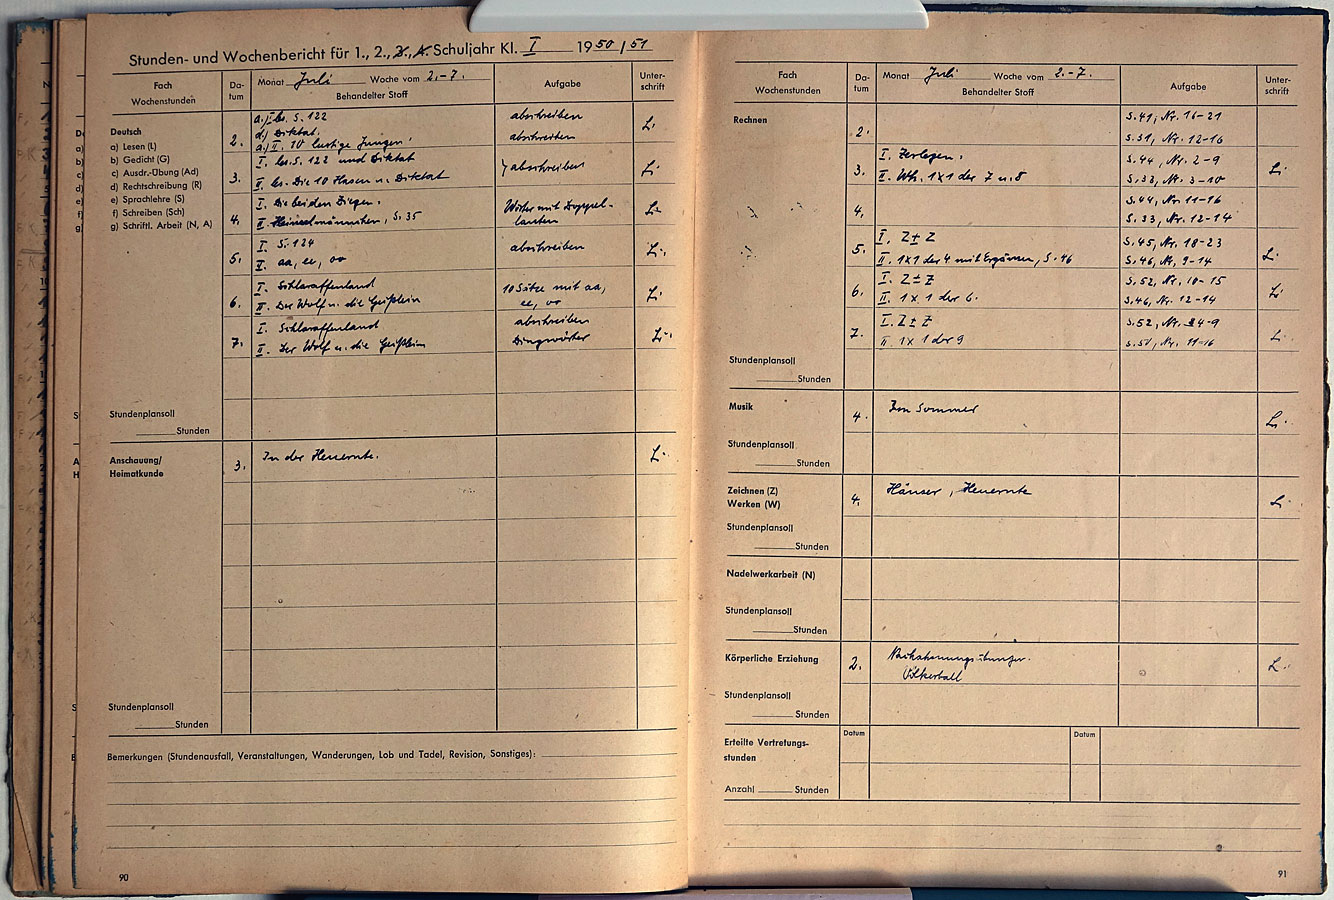 Stunden- und Wochenbericht für 1., 2., 3., 4. Schuljahr Kl. I 1950/51
Fach
Wochenstunden
Da-
tum
Monat Juli Woche vom 2.-7.
Behandelter Stoff
Aufgabe
Unter-
schrift
Deutsch
a) Lesen (L)
b) Gedicht (G)
c) Ausdr.-Übung (Ad)
d) Rechtschreibung (R)
e) Sprachlehre (S)
f) Schreiben (Sch)
g) Schriftl. Arbeit (N, A)
2.
a.) I les. S. 122
abschreiben
Li
d.) Diktat.
a.) II. 10 lustige Jungen
abschreiben
3.
I. les. S. 122 und Diktat
abschreiben
Li
II. les. Die 10 Hasen u. Diktat
4.
I. Die beiden Ziegen.
Wörter mit Doppel-
Li.
II. Heinzelmännchen, S. 35
lauten
5.
I. S. 124
abschreiben
Li.
II. aa, ee, oo
6.
I. Schlaraffenland
10 Sätze mit aa,
Li
II. Der Wolf u. die Geißlein
ee, oo
7.
I. Schlaraffenland
abschreiben
Li.
II. Der Wolf u. die Geißlein
Dingwörter
Stundenplansoll
Stunden
Anschauung/
Heimatkunde
3.
In der Heuernte.
Li
Stundenplansoll
Stunden
Bemerkungen (Stundenausfall, Veranstaltungen, Wanderungen, Lob und Tadel, Revision, Sonstiges):
90
Fach
Wochenstunden
Da-
tum
Monat Juli Woche vom 2.-7.
Behandelter Stoff
Aufgabe
Unter-
schrift
Rechnen
2.
S. 41, Nr. 16-21
S. 31, Nr. 12-16
3.
I. Zerlegen.
S. 44, Nr. 2-9
Li
II. Wh. 1x1 der 7 u. 8
S. 33, Nr. 3-10
4.
S. 44, Nr. 11-16
S. 33, Nr. 12-14
5.
I. Z ± Z
S. 45, Nr. 18-23
Li
II. 1x1 der 4 mit Ergänzen, S. 46
S. 46, Nr. 9-14
6.
I. Z ± Z
S. 52, Nr. 10-15
Li
II. 1x1 der 6.
S. 46, Nr. 12-14
7.
I. Z ± Z
S. 52, Nr. 4-9
Li
II. 1x1 der 9
S. 51, Nr. 11-16
Stundenplansoll
Stunden
Musik
4.
Im Sommer
Li.
Stundenplansoll
Stunden
Zeichnen (Z)
Werken (W)
4.
Häuser, Heuernte
Li
Stundenplansoll
Stunden
Nadelwerkarbeit (N)
Stundenplansoll
Stunden
Körperliche Erziehung
2.
Völkerball
Li
Stundenplansoll
Stunden
Erteilte Vertretungs-
stunden
Datum
Datum
Anzahl Stunden
91